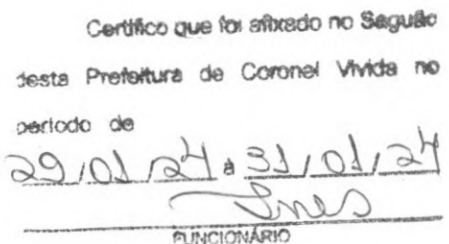 Certifico que foi afixado no Saguão
desta Prefeitura de Coronel Vivida no
período de
29/01/24 a 31/01/24
Ines
FUNCIONÁRIO